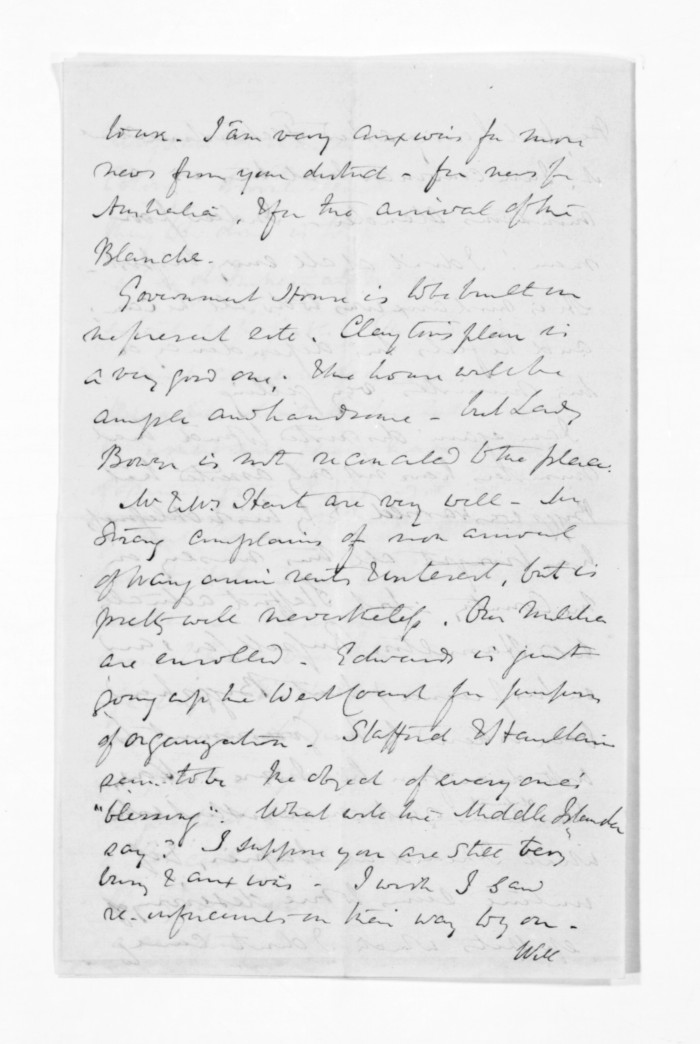 I am very anxious for more
news from your district - for news fr
Australia, & for the arrival of the
Blanche.
Government House is to be built on
its present site. Clayton's plan is
a very good one, & the house will be
ample and handsome - but Lady
Bowen is not reconciled to the place.
Mr & Mrs Hart are very well - Mr
Strang complains of non arrival
of Wanganui rents & interest, but is
pretty well nevertheless. Our Militia
are enrolled - Edwards is just
going up the West Coast for purposes
of organization. Stafford & Haultain
seem to be the object of everyone's
"blessing". What will the Middle Islander
say? I suppose you are still very
busy & anxious - I wish I saw
re-inforcements on their way to you -
Will